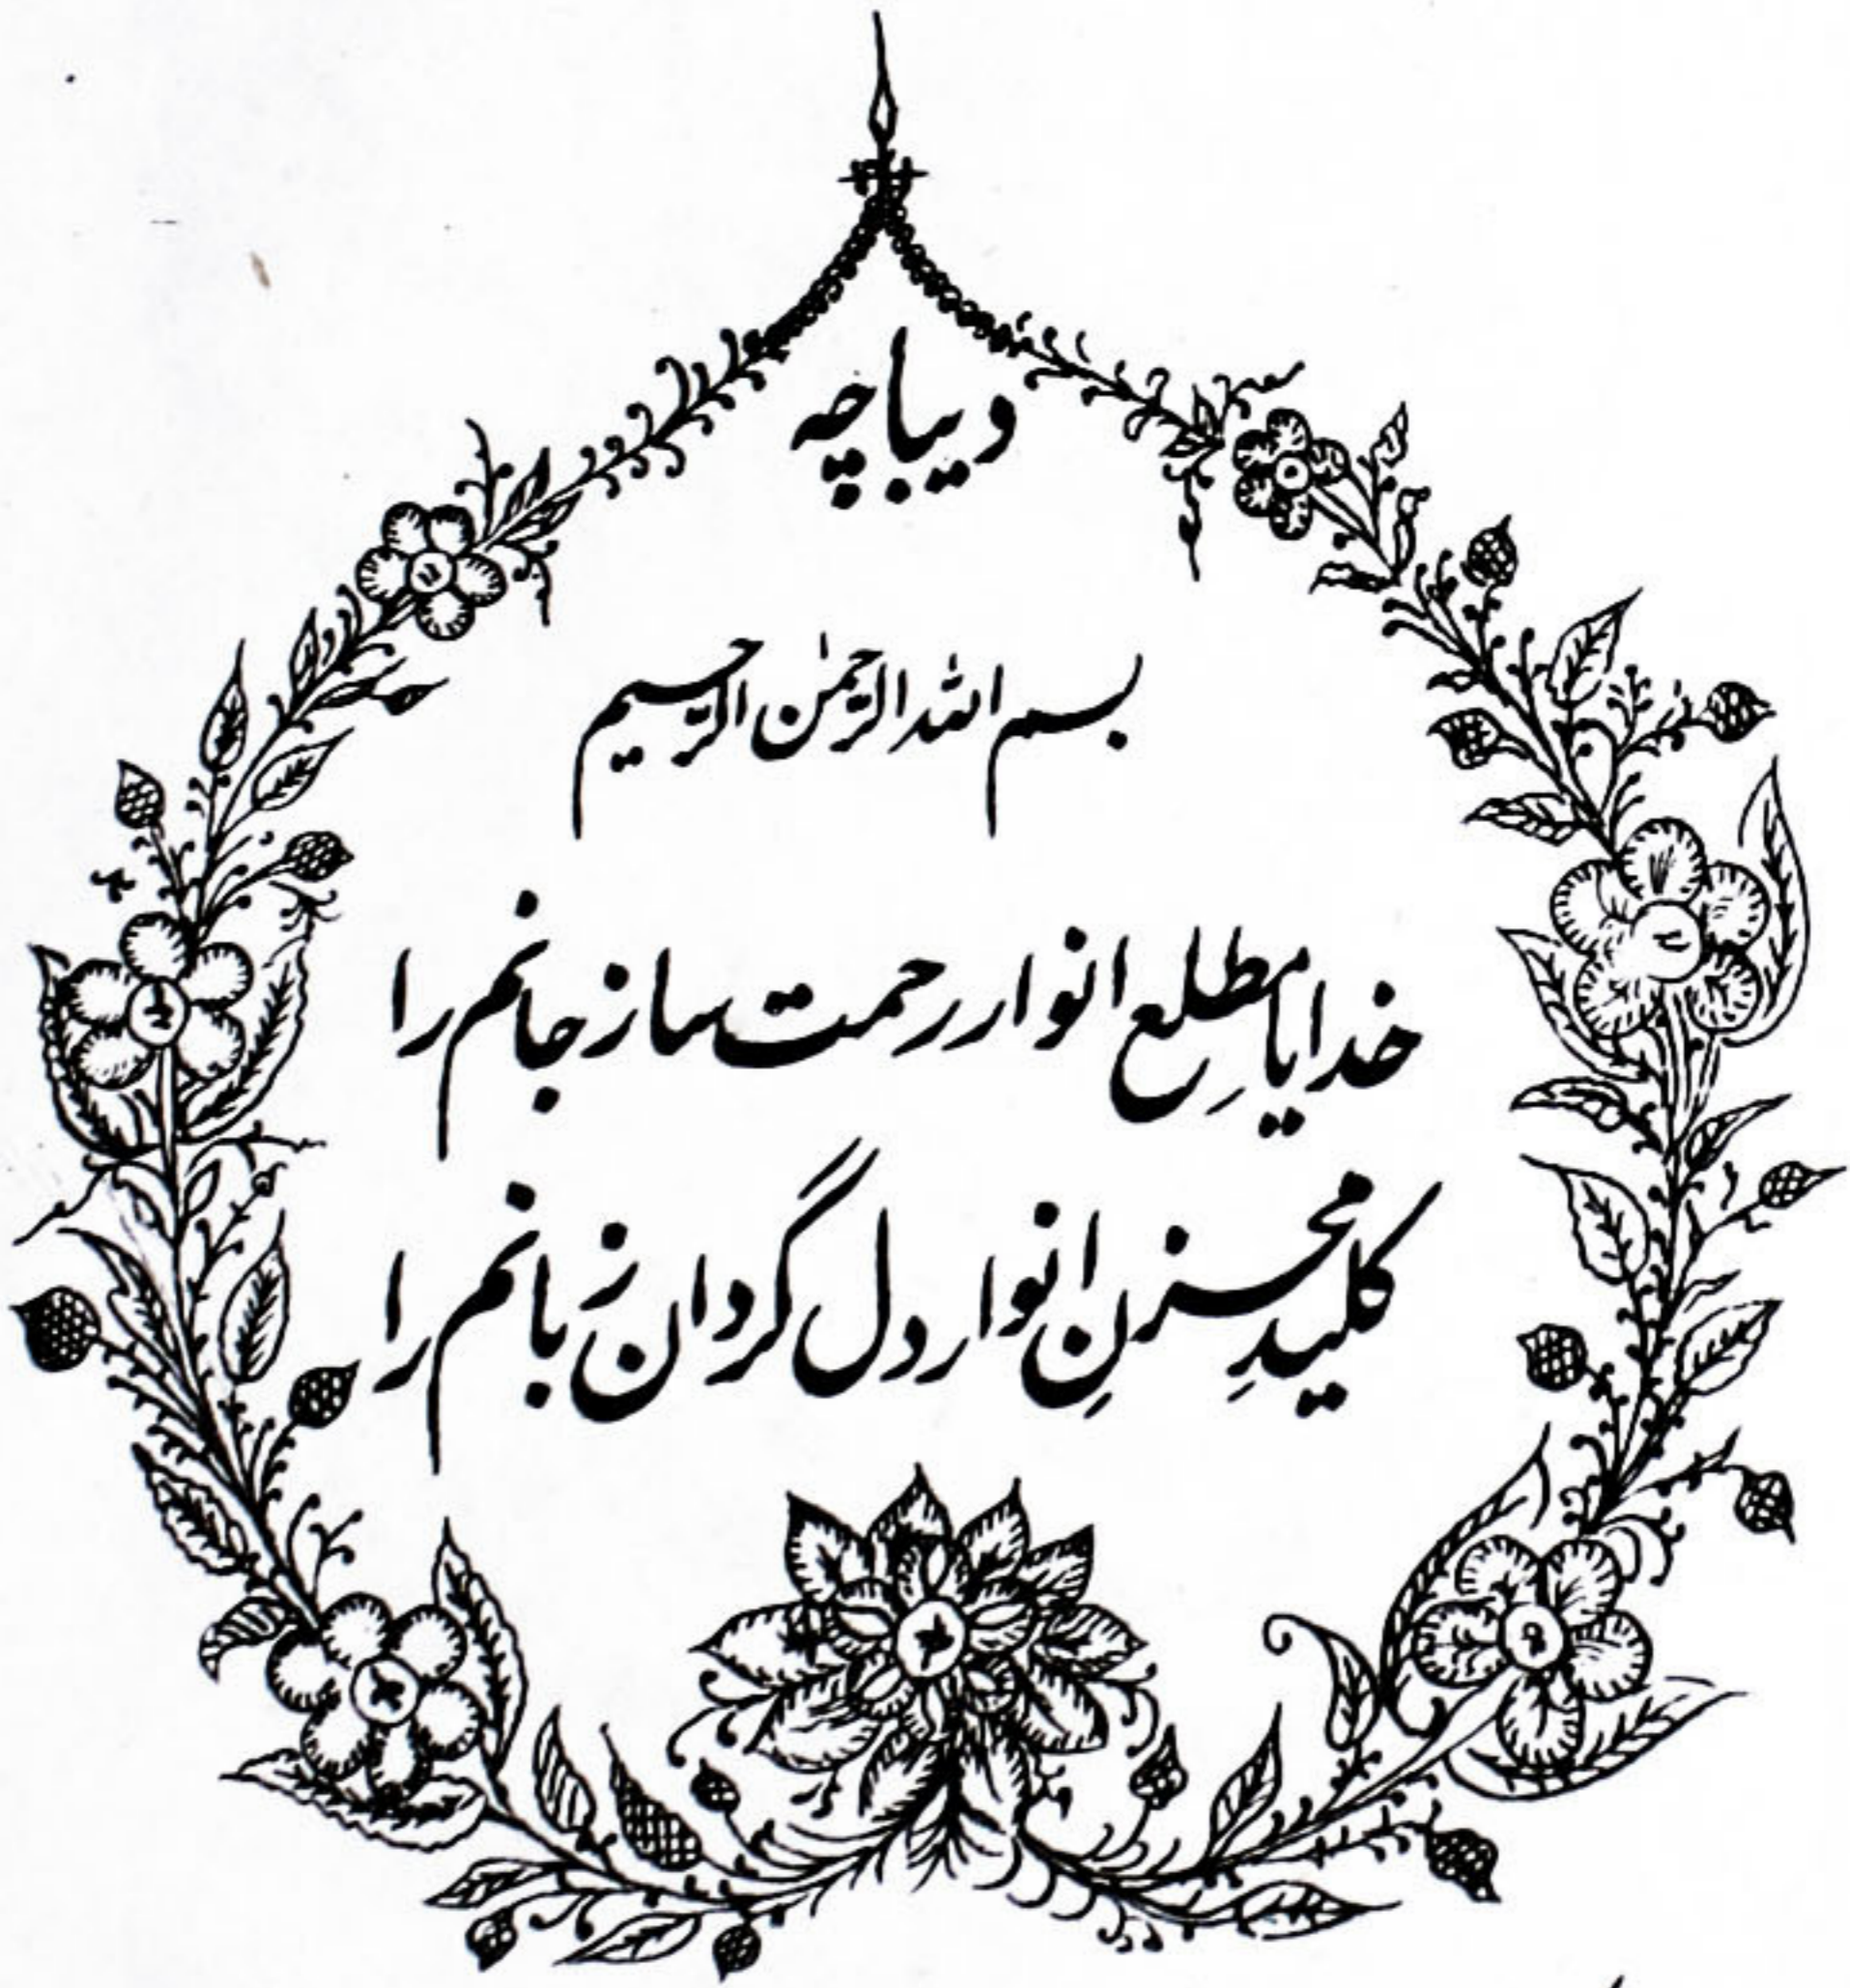 دیباچہ
بسم اللہ الرحمٰن الرحیم
خدایا مطلعِ انوار رحمت ساز جانم را
کلیدِ مخزنِ انوار دل گردان زبانم را